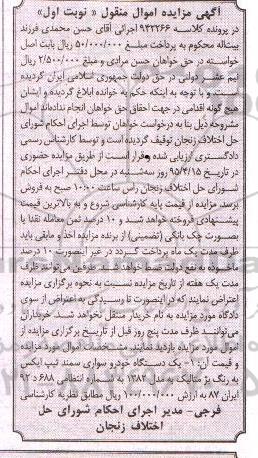 آگهی مزایده اموال منقول « نوبت اول»
در پرونده کلاسه ۹۴۲۲۶۶ اجرائی آقای حسن محمدی فرزند
بیتاله محکوم به پرداخت مبلغ ۵۰/۰۰۰/۰۰۰ ریال بابت اصل
خواسته در حق خواهان حسن مرادی و مبلغ ۲/۵۰۰/۰۰۰ ریال
نیم عشر دولتی در حق دولت جمهوری اسلامی ایران گردیده
است و با توجه به اینکه حکم به خوانده ابلاغ گردیده و ایشان
هیچ گونه اقدامی در جهت احقاق حق خواهان انجام نداده‌اند اموال
مشروحه ذیل بنا به درخواست خواهان توسط اجرای احکام شورای
حل اختلاف زنجان توقیف گردیده است و توسط کارشناس رسمی
دادگستری ارزیابی شده و قرار است از طریق مزایده حضوری
در تاریخ ۹۵/۴/۱۵ روز سه‌شنبه در محل دفتر اجرای احکام
شورای حل اختلاف زنجان راس ساعت ۱۰:۰۰ صبح به فروش
برسد مزایده از قیمت پایه کارشناسی شروع و به بالاترین قیمت
پیشنهادی فروخته خواهد شد و ۱۰ درصد ثمن معامله نقدا یا
بصورت چک بانکی (تضمینی) از برنده مزایده اخذ و مابقی باید
ظرف مدت یک ماه پرداخت گردد در غیر اینصورت ۱۰ درصد
ماخوذه به نفع دولت ضبط خواهد شد. طرفین می‌توانند ظرف
مدت یک هفته از تاریخ مزایده نسبت به نحوه برگزاری مزایده
اعتراض نمایند که در اینصورت تا رسیدگی به اعتراض از سوی
دادگاه مورد مزایده به نام خریدار منتقل نخواهد شد. خریداران
می‌توانند ظرف مدت پنج روز قبل از تاریخ برگزاری مزایده از
اموال مورد مزایده بازدید نمایند. مشخصات اموال مورد مزایده
و قیمت آن: ۱- یک دستگاه خودرو سواری سمند تیپ ایکس
به رنگ بژ متالک به مدل ۱۳۸۲ به شماره انتظامی ۶۸۸ د ۹۲
ایران ۸۷ به ارزش ۱۰۰/۰۰۰/۰۰۰ ریال مطابق نظریه کارشناسی
فرجی- مدیر اجرای احکام شورای حل
اختلاف زنجان